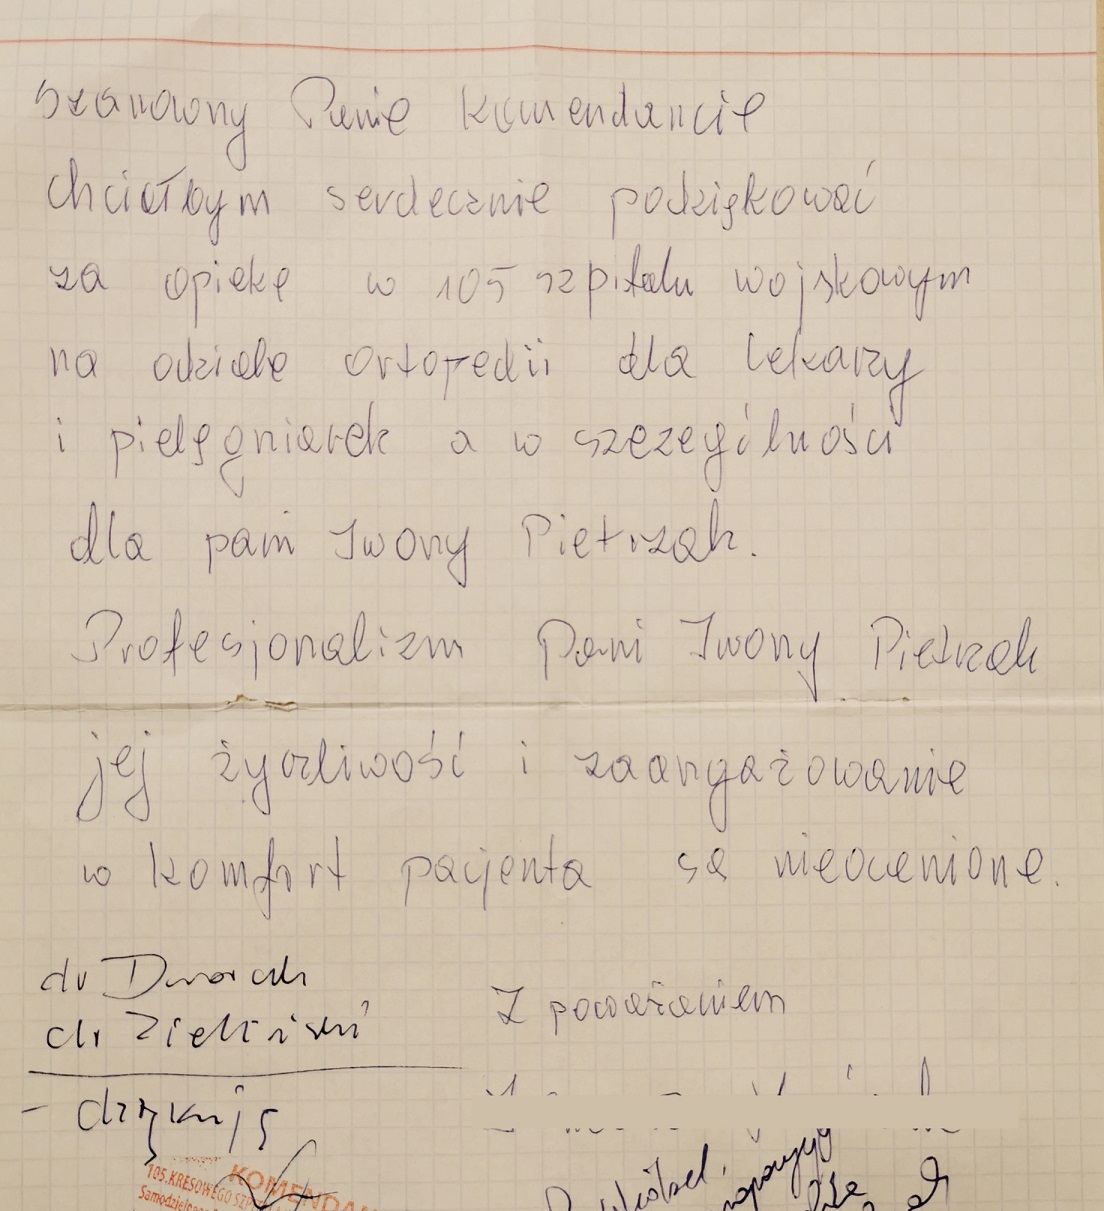 Szanowny Panie Komendancie
chciałbym serdecznie podziękować
za opiekę w 105 szpitalu wojskowym
na odziale ortopedii dla lekarzy
i pielęgniarek a w szczególności
dla pani Iwony Pietrzak.
Profesjonalizm Pani Iwony Pietrzak
jej życzliwość i zaangażowanie
w komfort pacjenta są nieocenione.
Z poważaniem
dr
dr Zieliński
- dziękuję
KOMENDAN
105. KRESOWEGO SZP